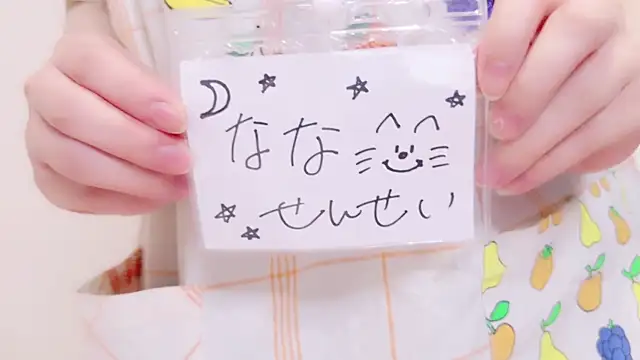 なな
せんせい